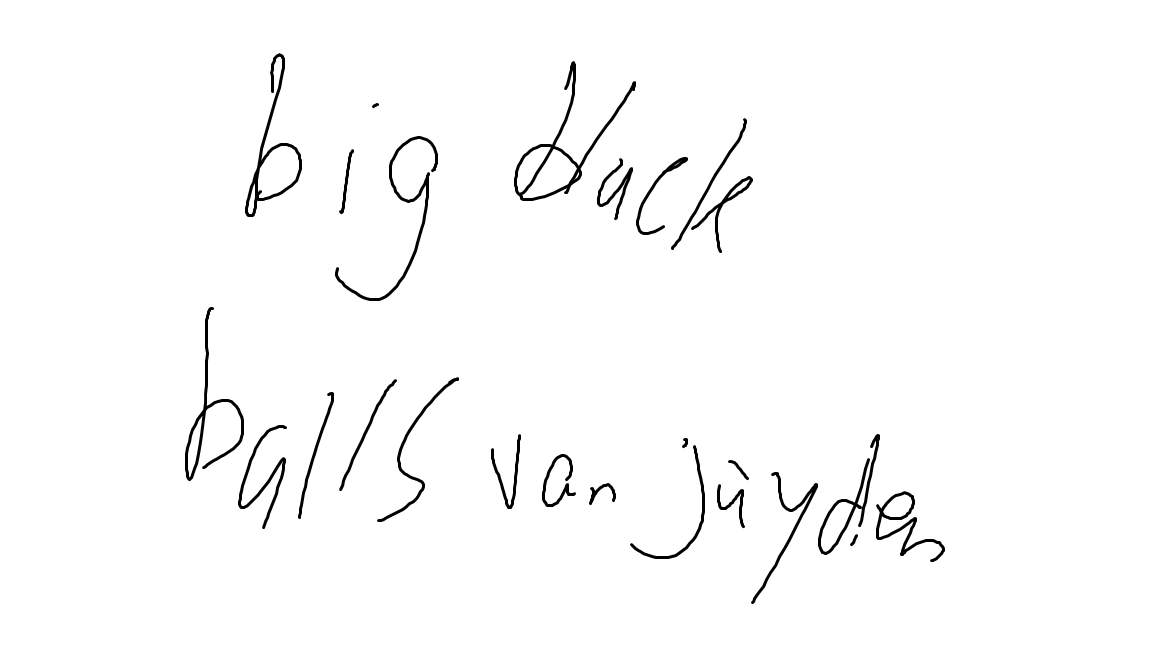 big dlack
balls van jùyden